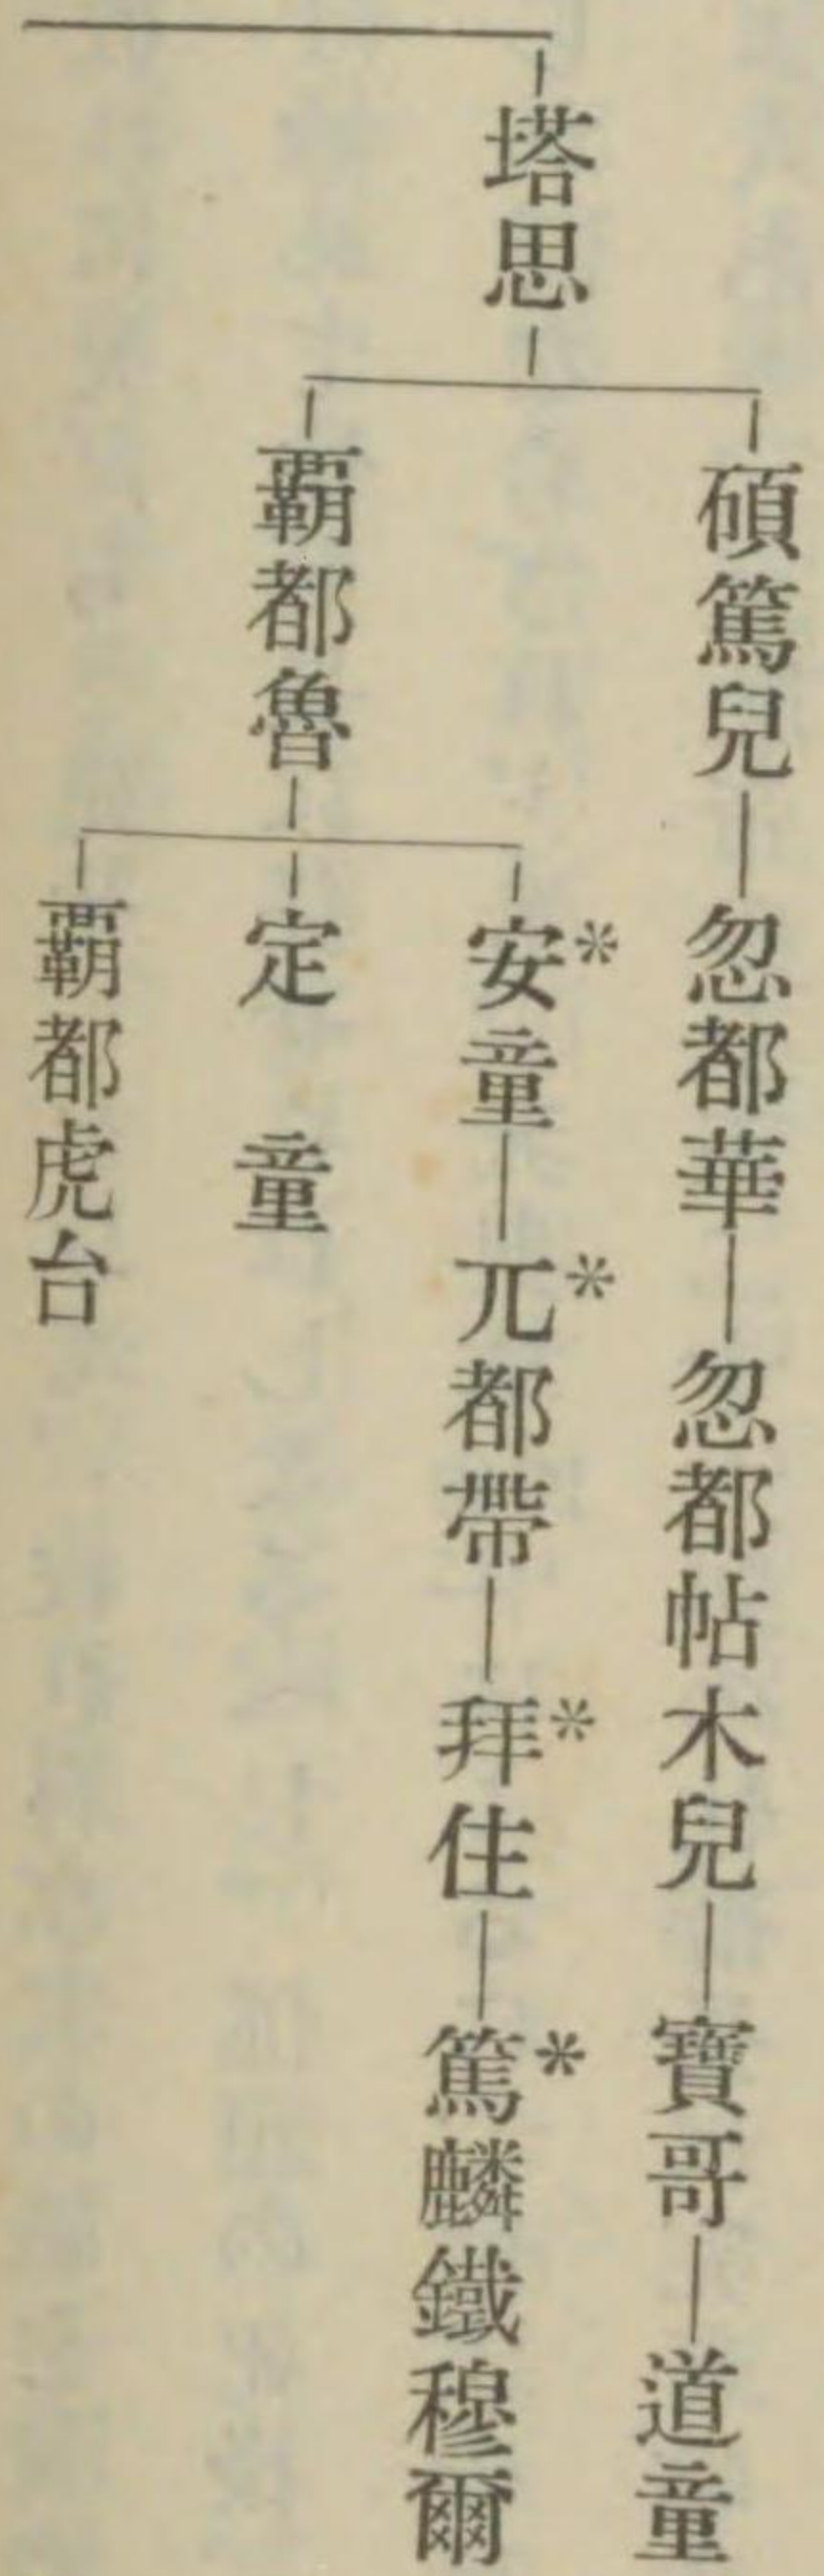 塔思
碩篤兒―忽都華―忽都帖木兒―寶哥―道童
覇都魯
*安童―*兀都帶―*拜住―*篤麟鐵穆爾
定童
覇都虎台